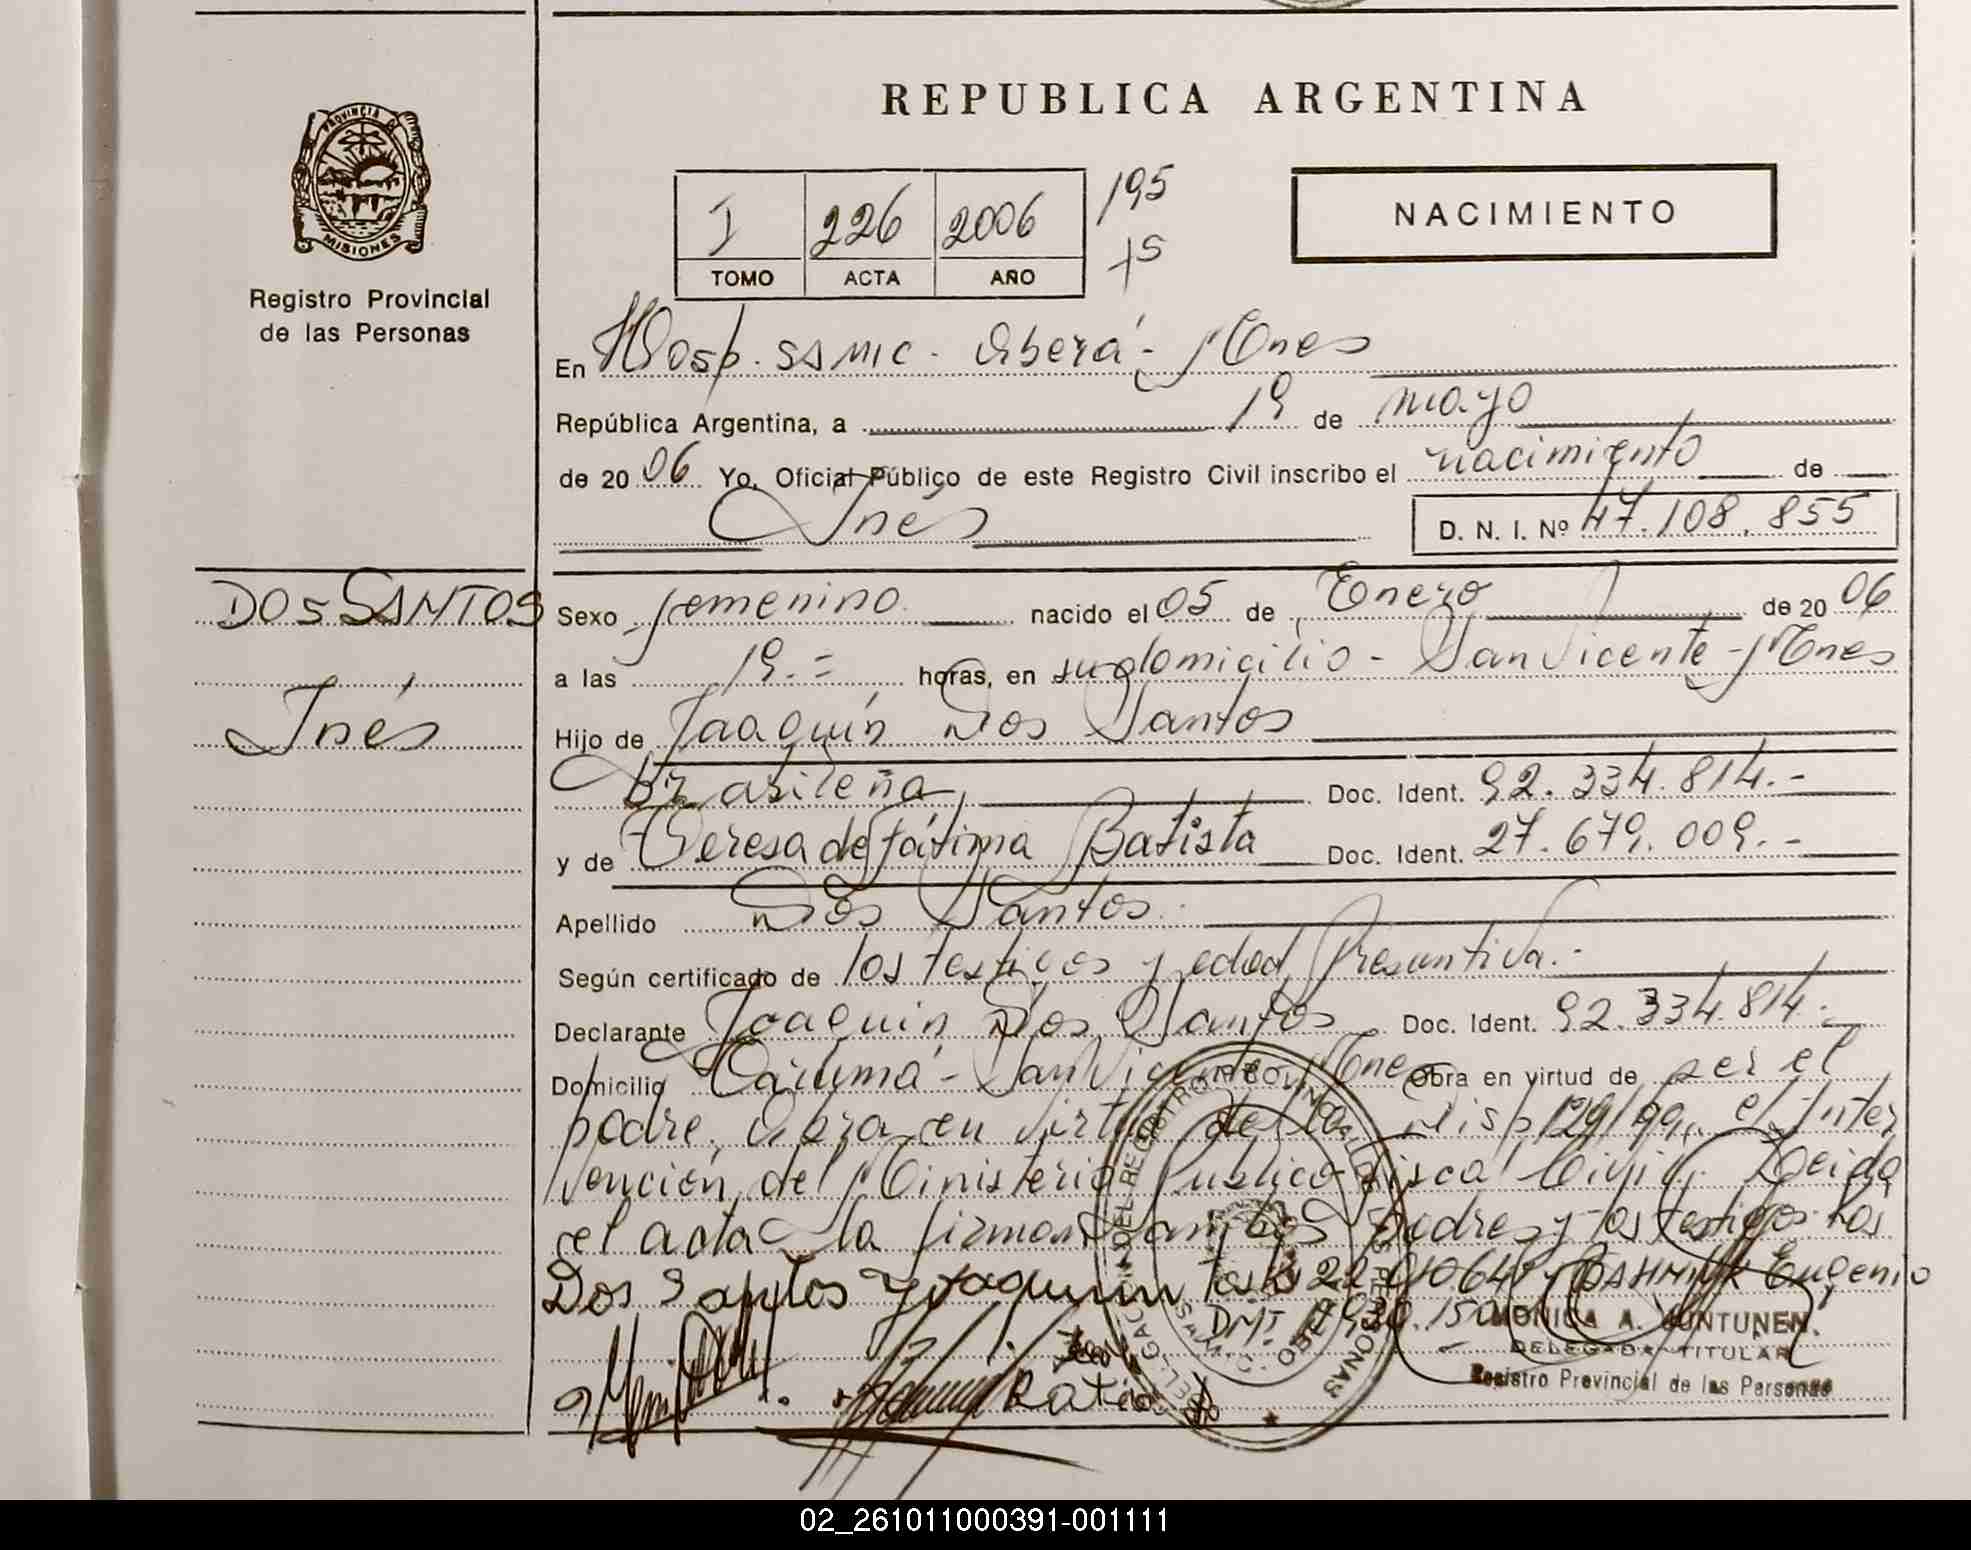 REPUBLICA ARGENTINA
PROVINCIA DE
MISIONES
Registro Provincial
de las Personas
I 226 2006 195
TOMO ACTA AÑO 75
NACIMIENTO
En Hosp. SAMIC - Oberá - Mnes
República Argentina, a 19 de mayo
de 20 06 Yo, Oficial Público de este Registro Civil inscribo el nacimiento de
Inés D. N. I. Nº 47.108.855
DOS SANTOS
Inés
Sexo femenino nacido el 05 de Enero de 20 06
a las 19.= horas, en su domicilio - San Vicente - Mnes
Hijo de Joaquín Dos Santos
brasileña Doc. Ident. 92.334.814.-
y de Teresa de Fátima Batista Doc. Ident. 27.679.009.-
Apellido Dos Santos
Según certificado de los testigos y edad Presuntiva.-
Declarante Joaquín Dos Santos Doc. Ident. 92.334.814.-
Domicilio - San Vicente Mnes Obra en virtud de ser el
padre. Obra en virtud de la Disp 129/99, e Inter
vención del Ministerio Publico Fiscal Civil. Leida
el acta la firman ambos padres y los testigos
Dos Santos Joaquin Eugenio
MONICA A. JUNTUNEN
DELEGADA TITULAR
Registro Provincial de las Personas
DEL REGISTRO PROVINCIAL DE LAS PERSONAS
OBERA
02_261011000391-001111